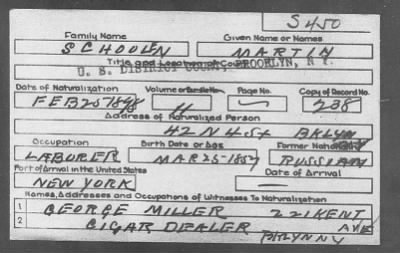 S450
Family Name Given Name or Names
SCHOOLEN MARTIN
Title and Location of Court
U. S. DISTRICT COURT, BROOKLYN, N. Y.
Date of Naturalization Volume or Bundle No. Page No. Copy of Record No.
FEB 25 1898 11 — 238
Address of Naturalized Person
42 N 4 St BKLYN
Occupation Birth Date or Age Former Nationality
LABORER MAR 25-1857 RUSSIAN
Port of Arrival in the United States Date of Arrival
NEW YORK —
Names, Addresses and Occupations of Witnesses To Naturalization
1 GEORGE MILLER 221 KENT AVE
2 CIGAR DEALER BKLYN NY